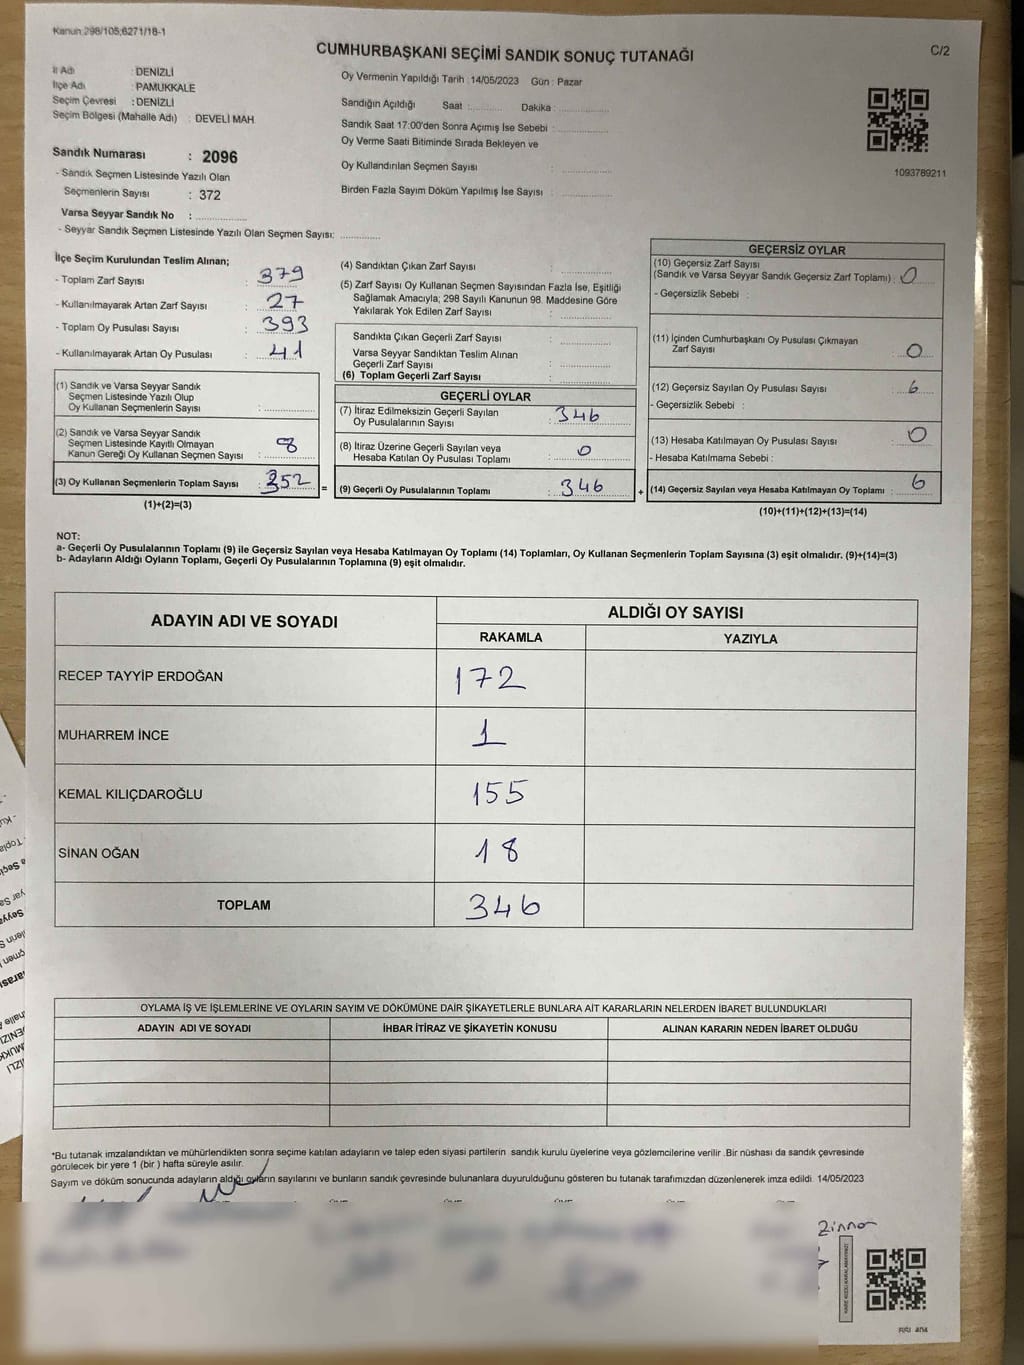 Kanun:298/105;6271/18-1
CUMHURBAŞKANI SEÇİMİ SANDIK SONUÇ TUTANAĞI
C/2
İl Adı : DENİZLİ
İlçe Adı : PAMUKKALE
Seçim Çevresi : DENİZLİ
Seçim Bölgesi (Mahalle Adı) : DEVELİ MAH
Sandık Numarası : 2096
- Sandık Seçmen Listesinde Yazılı Olan
Seçmenlerin Sayısı : 372
Varsa Seyyar Sandık No :
- Seyyar Sandık Seçmen Listesinde Yazılı Olan Seçmen Sayısı:
Oy Vermenin Yapıldığı Tarih :14/05/2023 Gün : Pazar
Sandığın Açıldığı Saat : Dakika :
Sandık Saat 17:00'den Sonra Açımış İse Sebebi :
Oy Verme Saati Bitiminde Sırada Bekleyen ve
Oy Kullandırılan Seçmen Sayısı :
Birden Fazla Sayım Döküm Yapılmış İse Sayısı :
1093789211
İlçe Seçim Kurulundan Teslim Alınan;
- Toplam Zarf Sayısı : 379
- Kullanılmayarak Artan Zarf Sayısı : 27
- Toplam Oy Pusulası Sayısı : 393
- Kullanılmayarak Artan Oy Pusulası : 41
(1) Sandık ve Varsa Seyyar Sandık
Seçmen Listesinde Yazılı Olup
Oy Kullanan Seçmenlerin Sayısı :
(2) Sandık ve Varsa Seyyar Sandık
Seçmen Listesinde Kayıtlı Olmayan
Kanun Gereği Oy Kullanan Seçmen Sayısı : 8
(3) Oy Kullanan Seçmenlerin Toplam Sayısı : 352 =
(1)+(2)=(3)
(4) Sandıktan Çıkan Zarf Sayısı :
(5) Zarf Sayısı Oy Kullanan Seçmen Sayısından Fazla İse, Eşitliği
Sağlamak Amacıyla; 298 Sayılı Kanunun 98. Maddesine Göre
Yakılarak Yok Edilen Zarf Sayısı :
Sandıkta Çıkan Geçerli Zarf Sayısı :
Varsa Seyyar Sandıktan Teslim Alınan
Geçerli Zarf Sayısı :
(6) Toplam Geçerli Zarf Sayısı :
GEÇERLİ OYLAR
(7) İtiraz Edilmeksizin Geçerli Sayılan
Oy Pusulalarının Sayısı : 346
(8) İtiraz Üzerine Geçerli Sayılan veya
Hesaba Katılan Oy Pusulası Toplamı : 0
(9) Geçerli Oy Pusulalarının Toplamı : 346 +
GEÇERSİZ OYLAR
(10) Geçersiz Zarf Sayısı
(Sandık ve Varsa Seyyar Sandık Geçersiz Zarf Toplamı) : 0
- Geçersizlik Sebebi :
(11) İçinden Cumhurbaşkanı Oy Pusulası Çıkmayan
Zarf Sayısı : 0
(12) Geçersiz Sayılan Oy Pusulası Sayısı : 6
- Geçersizlik Sebebi :
(13) Hesaba Katılmayan Oy Pusulası Sayısı : 0
- Hesaba Katılmama Sebebi :
(14) Geçersiz Sayılan veya Hesaba Katılmayan Oy Toplamı : 6
(10)+(11)+(12)+(13)=(14)
NOT:
a- Geçerli Oy Pusulalarının Toplamı (9) ile Geçersiz Sayılan veya Hesaba Katılmayan Oy Toplamı (14) Toplamları, Oy Kullanan Seçmenlerin Toplam Sayısına (3) eşit olmalıdır. (9)+(14)=(3)
b- Adayların Aldığı Oyların Toplamı, Geçerli Oy Pusulalarının Toplamına (9) eşit olmalıdır.
ADAYIN ADI VE SOYADI
ALDIĞI OY SAYISI
RAKAMLA YAZIYLA
RECEP TAYYİP ERDOĞAN 172
MUHARREM İNCE 1
KEMAL KILIÇDAROĞLU 155
SİNAN OĞAN 18
TOPLAM 346
OYLAMA İŞ VE İŞLEMLERİNE VE OYLARIN SAYIM VE DÖKÜMÜNE DAİR ŞİKAYETLERLE BUNLARA AİT KARARLARIN NELERDEN İBARET BULUNDUKLARI
ADAYIN ADI VE SOYADI İHBAR İTİRAZ VE ŞİKAYETİN KONUSU ALINAN KARARIN NEDEN İBARET OLDUĞU
*Bu tutanak imzalandıktan ve mühürlendikten sonra seçime katılan adayların ve talep eden siyasi partilerin sandık kurulu üyelerine veya gözlemcilerine verilir .Bir nüshası da sandık çevresinde
görülecek bir yere 1 (bir ) hafta süreyle asılır.
Sayım ve döküm sonucunda adayların aldığı oyların sayılarını ve bunların sandık çevresinde bulunanlara duyurulduğunu gösteren bu tutanak tarafımızdan düzenlenerek imza edildi. 14/05/2023